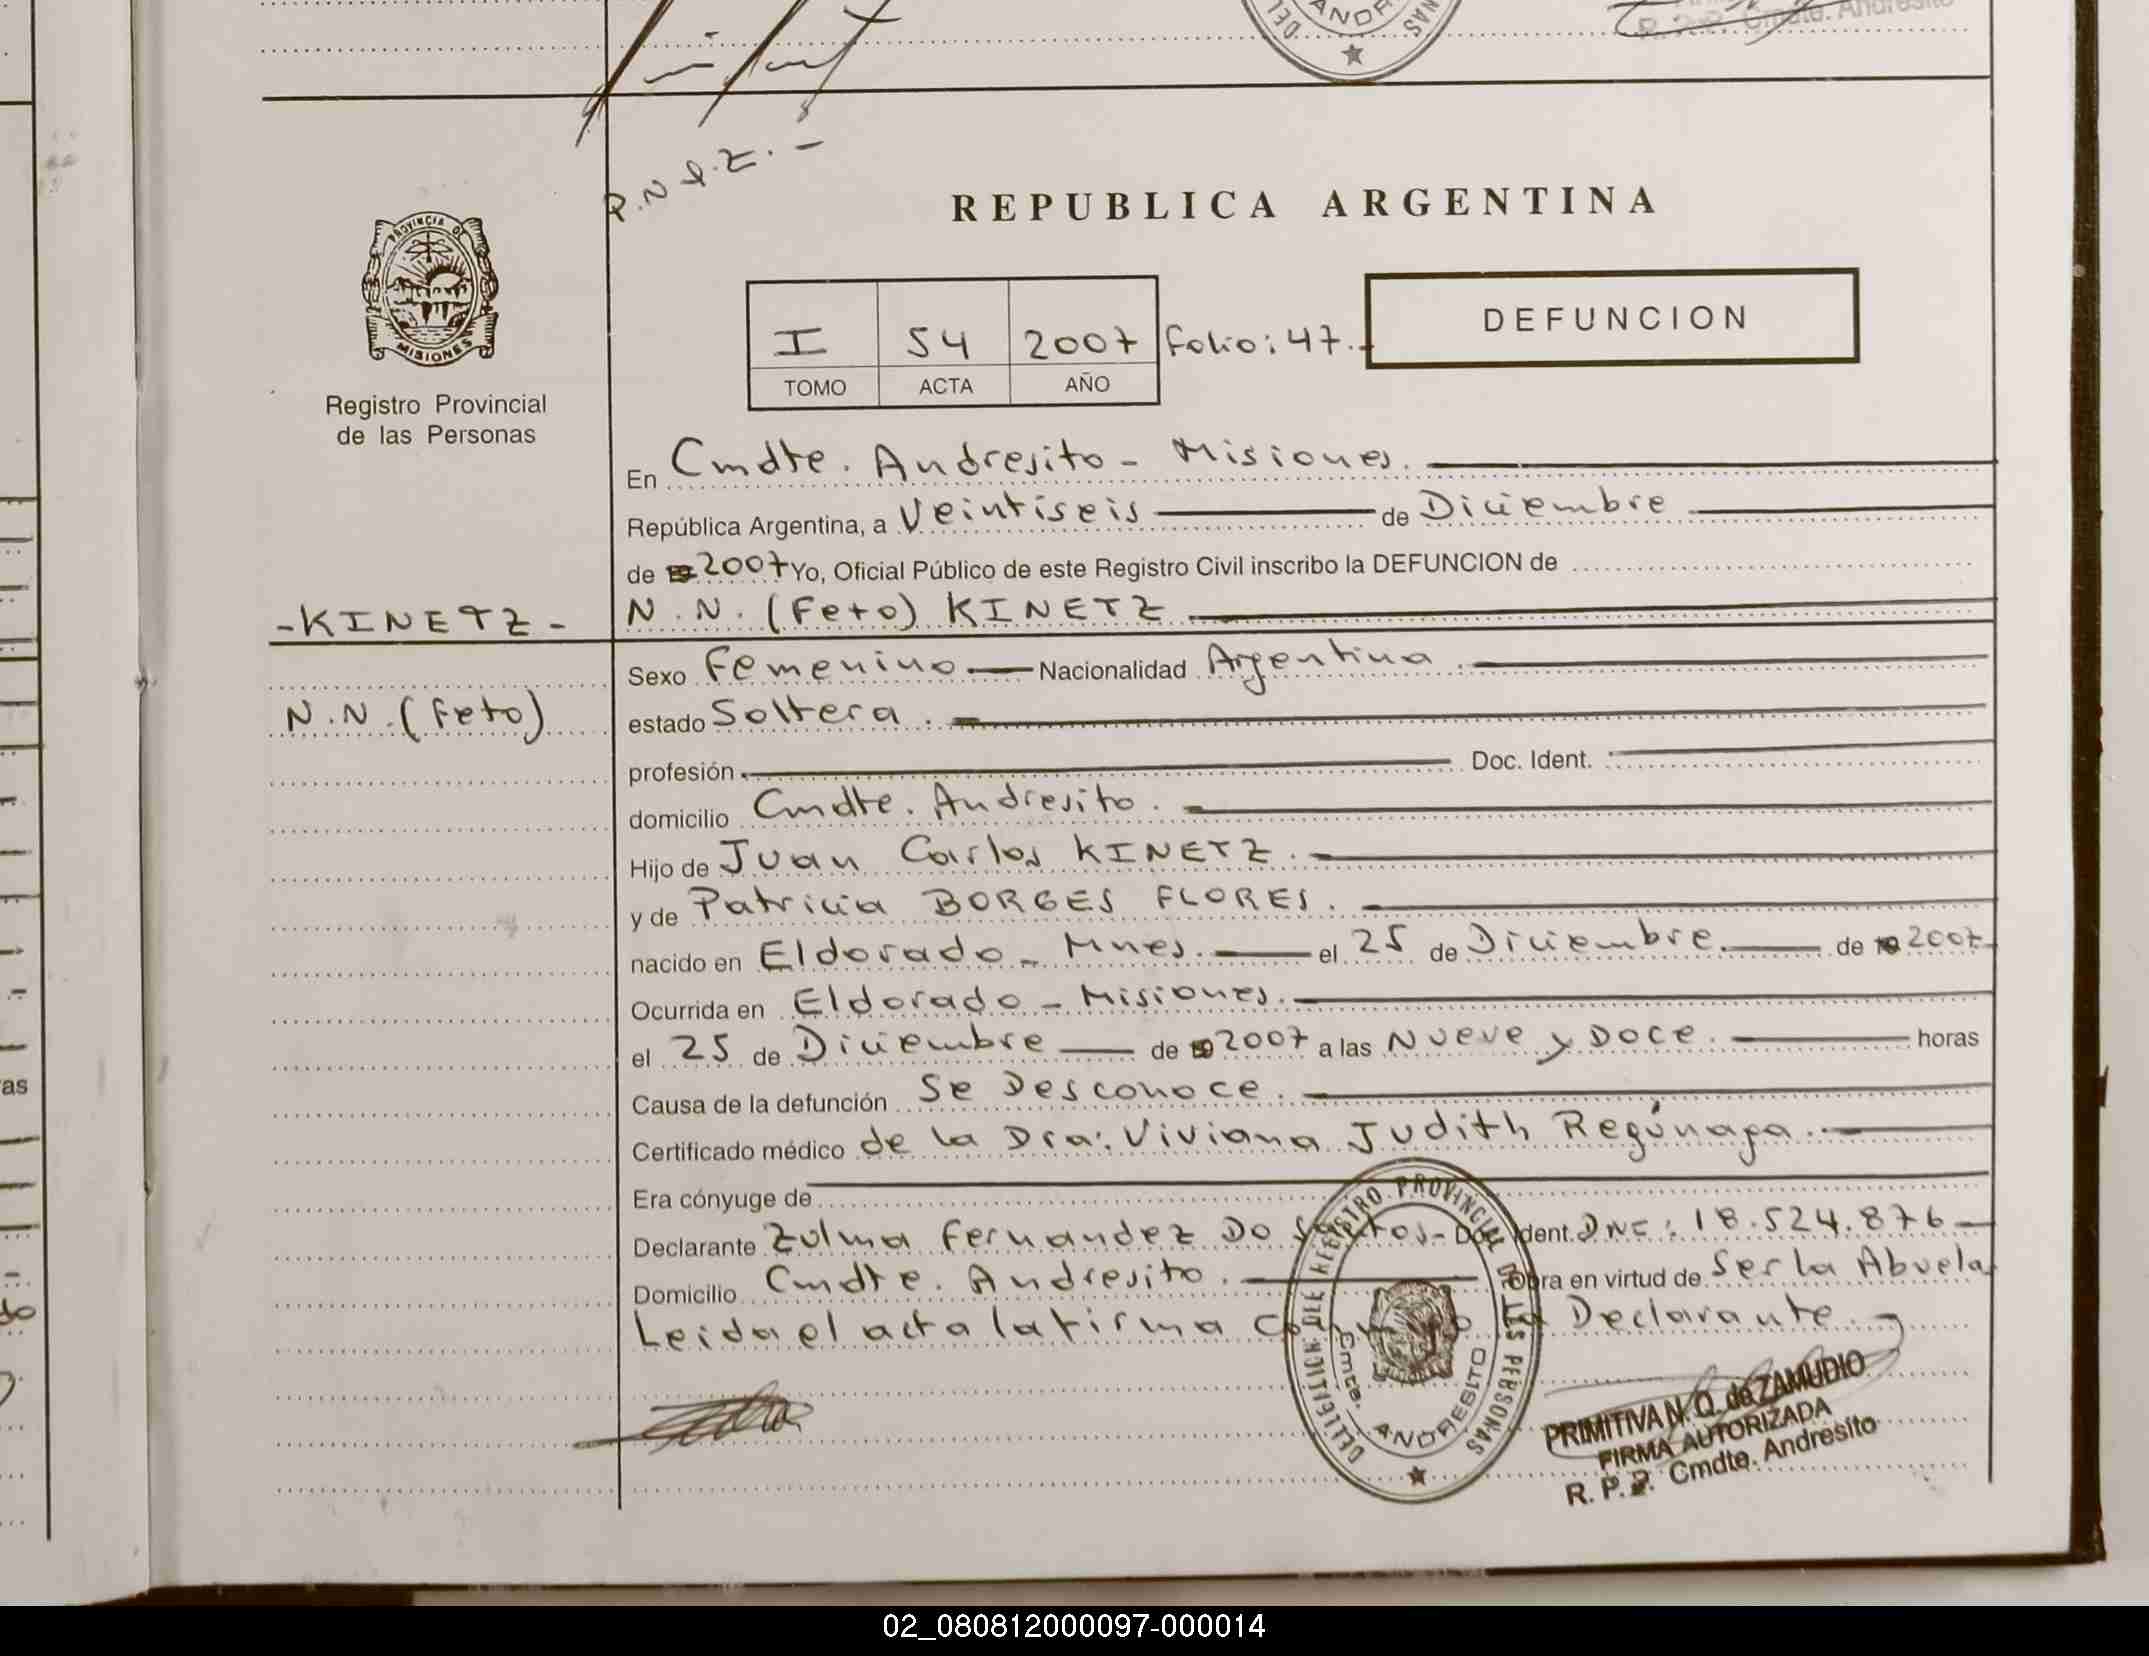 ANDR
DEL
NAS
R. P. P. Cmdte. Andresito
P.N.I.Z. -
PROVINCIA DE
MISIONES
Registro Provincial
de las Personas
REPUBLICA ARGENTINA
I 54 2007 Folio: 47.-
TOMO ACTA AÑO
DEFUNCION
En Cmdte. Andresito - Misiones.
República Argentina, a Veintiseis de Diciembre
de 2007 Yo, Oficial Público de este Registro Civil inscribo la DEFUNCION de
-KINETZ- N.N. (Feto) KINETZ
Sexo Femenino Nacionalidad Argentina.
N.N. (Feto)
estado Soltera.
profesión Doc. Ident.
domicilio Cmdte. Andresito.
Hijo de Juan Carlos KINETZ.
y de Patricia BORGES FLORES.
nacido en Eldorado - Mnes. el 25 de Diciembre. de 2007
Ocurrida en Eldorado - Misiones.
el 25 de Diciembre de 2007 a las Nueve y Doce. horas
Causa de la defunción Se Desconoce.
Certificado médico de la Dra: Viviana Judith Regúnaga.
Era cónyuge de
Declarante Zulma Fernandez Do Santos - Doc. Ident. DNI: 18.524.876
Domicilio Cmdte. Andresito. Obra en virtud de Ser la Abuela
Leida el acta la firma conmigo la Declarante.
REGISTRO PROVINCIAL DE LAS PERSONAS
Cmte. ANDRESITO
PRIMITIVA N. Q. de ZAMUDIO
FIRMA AUTORIZADA
R. P. P. Cmdte. Andresito
as
do
02_080812000097-000014